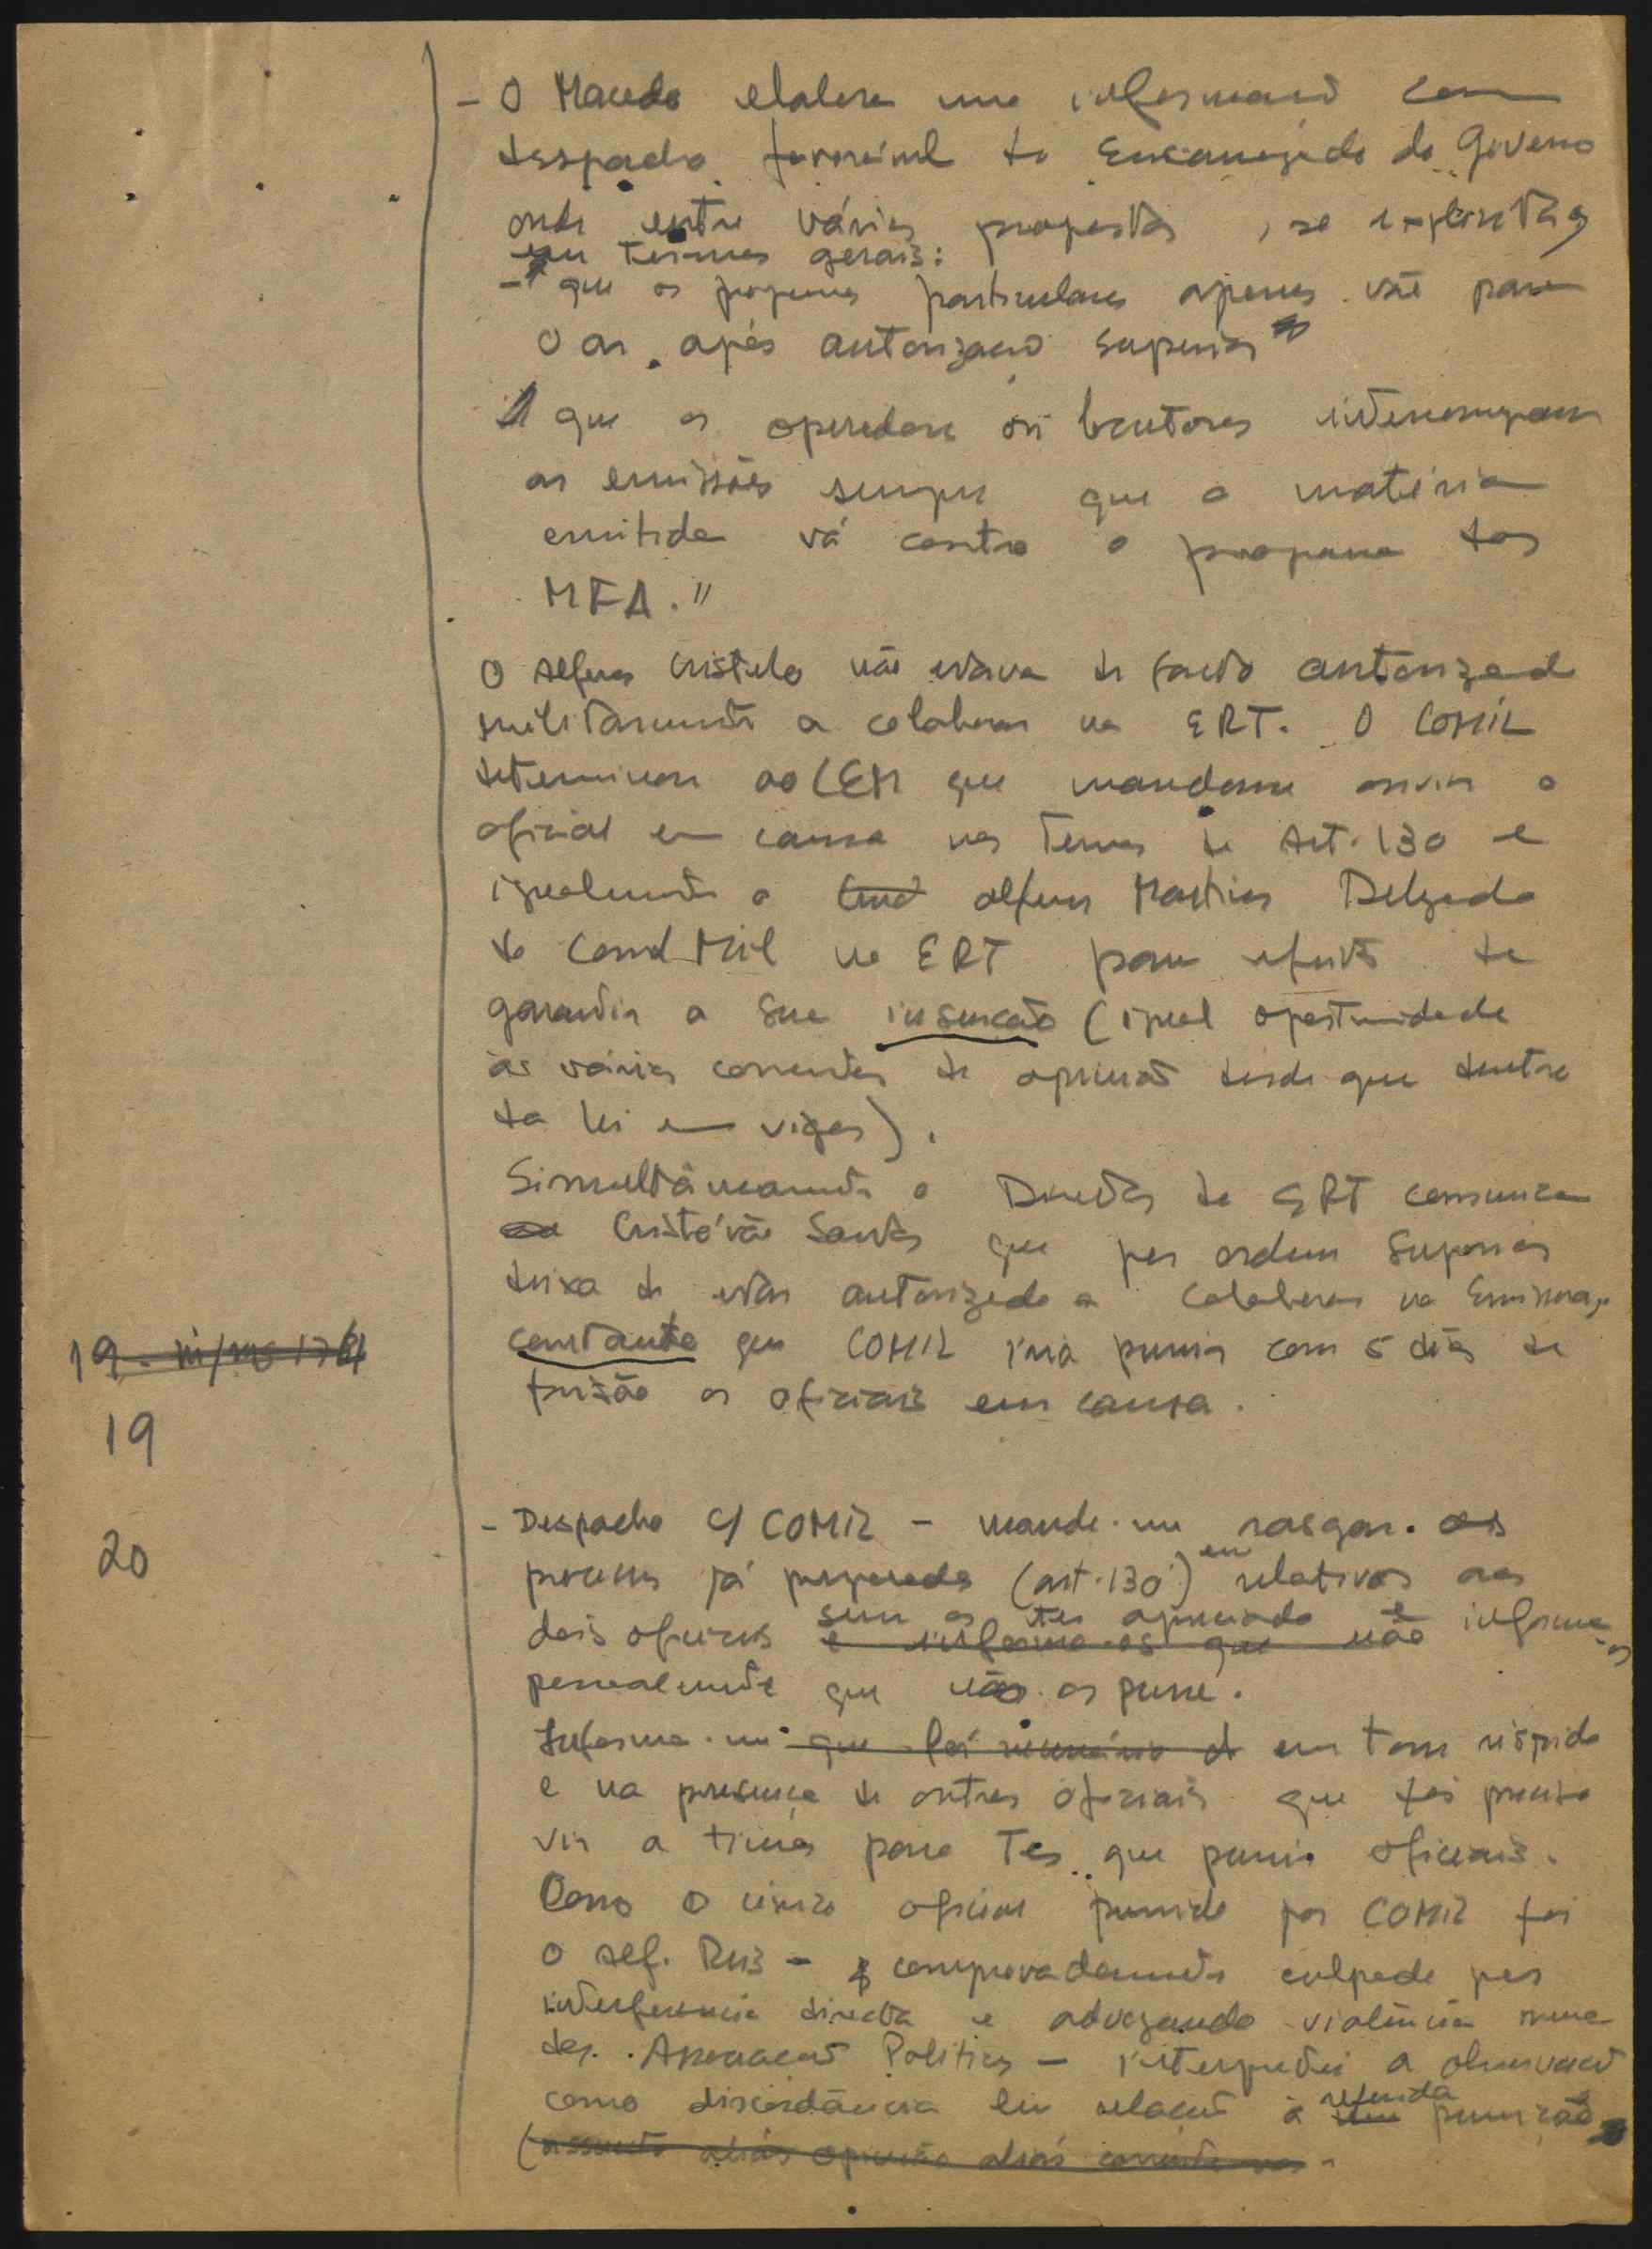 - O Macedo elabora uma informação com
despacho favorável do Encarregado do Governo
onde entre várias propostas, se explicita,
em termos gerais:
- que os programas particulares apenas vão para
o ar após autorização superior
que os operadores ou locutores interrompam
as emissões sempre que a matéria
emitida vá contra o programa do
MFA."
O Alferes Cristelo não estava de facto autorizado
militarmente a colaborar na ERT. O COMIL
determinou ao CEM que mandasse ouvir o
oficial em causa nos termos do Art. 130 e
igualmente o alferes Martins Delgado
do Comd Mil na ERT para efeitos de
garantir a sua insenção (igual oportunidade
às várias correntes de opinião desde que dentro
da lei em vigor).
Simultâneamente o Director da ERT comunica
Cristóvão Santos que por ordem superior
deixa de estar autorizado a colaborar na Emissora,
constando que COMIL iria punir com 5 dias de
prisão os oficiais em causa.
19
20
- Despacho c/ COMIL - manda-me rasgar os
processos já preparados (art. 130) em relativos aos
dois oficiais sem os ter apreciado e informa-os
pessoalmente que não os pune.
Informa-me que foi em tom ríspido
e na presença de outros oficiais que foi preciso
vir a Timor para ter que punir oficiais.
Como o único oficial punido por COMIL foi
o Alf. Ruiz - comprovadamente culpado por
interferência directa e advogando violência numa
das Associações Políticas - interpretei a observação
como discordância em relação à referida punição